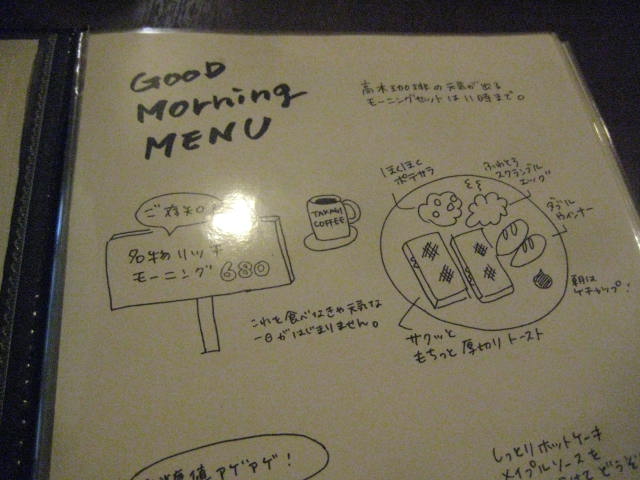 GOOD
Morning
MENU
高木珈琲の元気が出る
モーニングセットは11時まで。
ほくほく
ポテサラ
ふわとろ
スクランブル
エッグ
ダブル
ウィンナー
ご存知
TAKAGI
COFFEE
名物リッチ
モーニング 680
朝は
ケチャップ!
これを食べなきゃ元気な
一日がはじまりません。
サクッと
もちっと厚切りトースト
値アゲアゲ!
しっとりホットケーキ
メイプルソースを
どうぞ